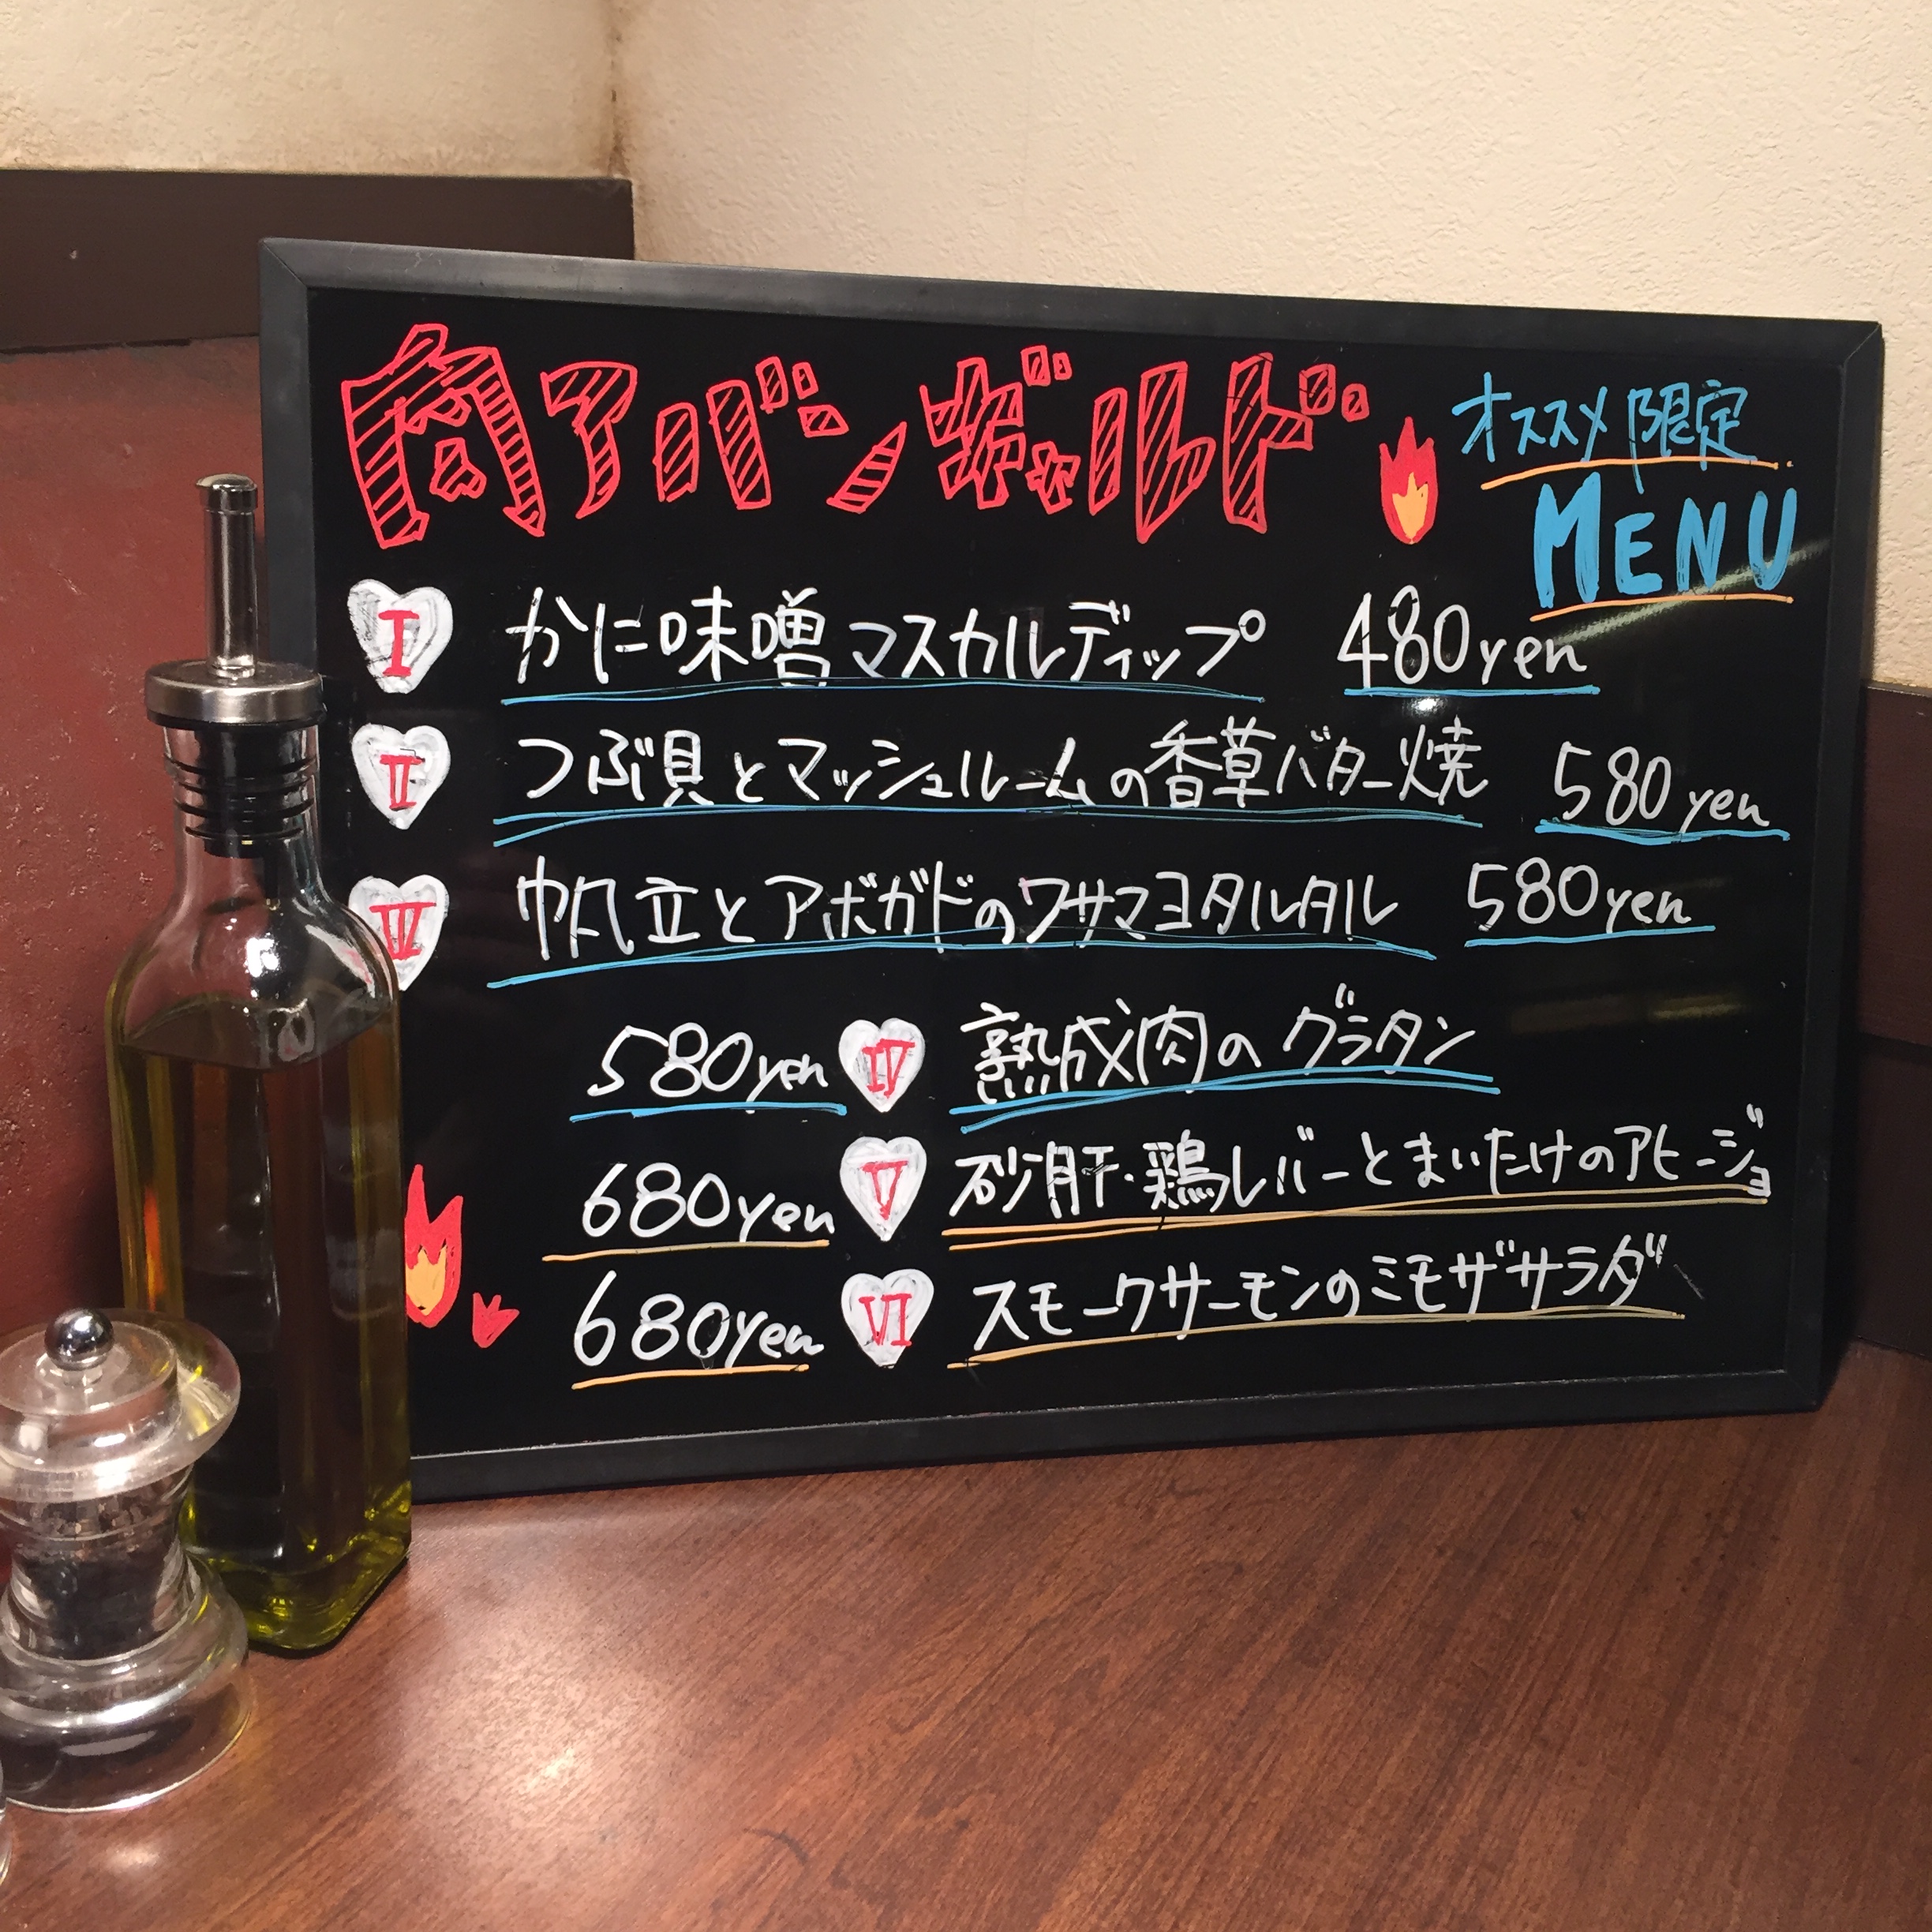 肉アバンギャルド
オススメ限定
MENU
I かに味噌マスカルディップ 480yen
II つぶ貝とマッシュルームの香草バター焼 580yen
III 帆立とアボガドのワサマヨタルタル 580yen
580yen IV 熟成肉のグラタン
680yen V 砂肝・鶏レバーとまいたけのアヒージョ
680yen VI スモークサーモンのミモザサラダ